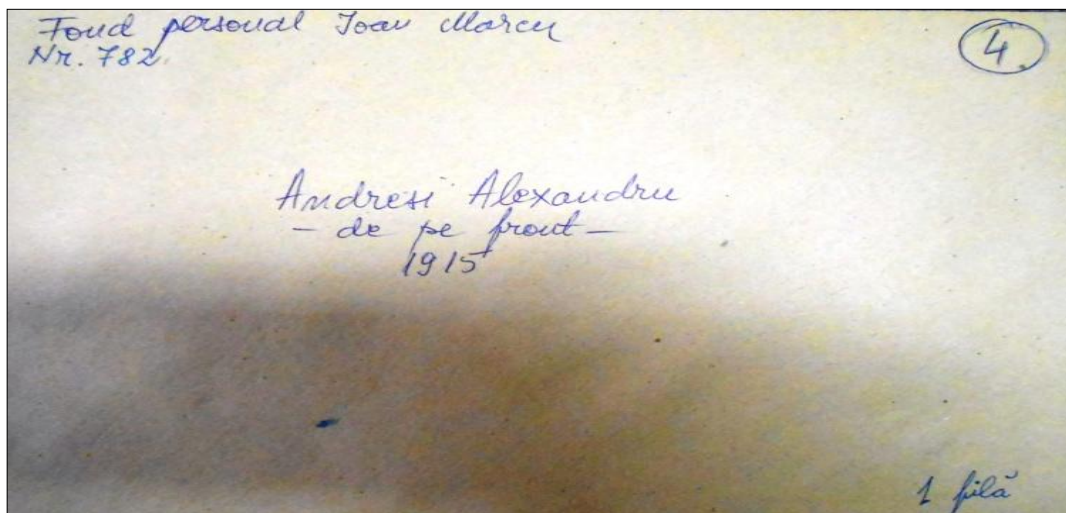 Fond personal Ioan Marcu
Nr. 782.
4.
Andresi Alexandru
- de pe front -
1915
1 filă